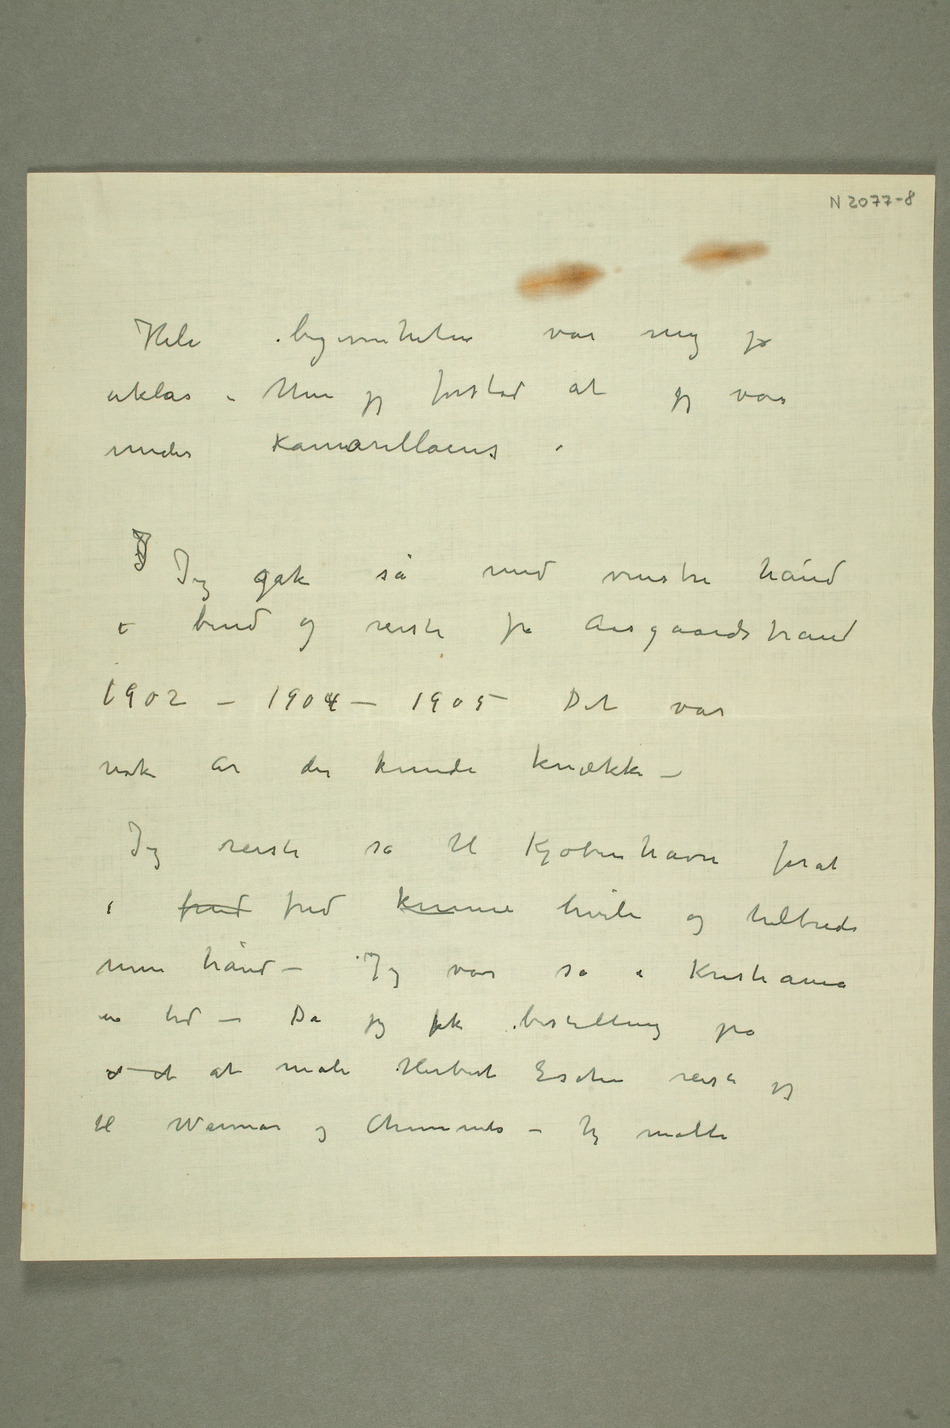 N 2077-8
Hele begivenheten var mig jo
uklar – Men jeg forstod at jeg var
under Kamarillaens .
Jeg gik så med venstre hånd
i bind og reiste fra Aasgaardstrand
1902 – 1904 – 1905 Det var
nok år der kunde knække –
Jeg reiste så til Kjøbenhavn forat
i fred fred kunne hvile og helbrede
min hånd – Jeg var så i Kristiania
en tid – Da jeg fik bestilling på
at at male Herbert Esche reiste jeg
til Weimar og Chemnitz – Jeg malte